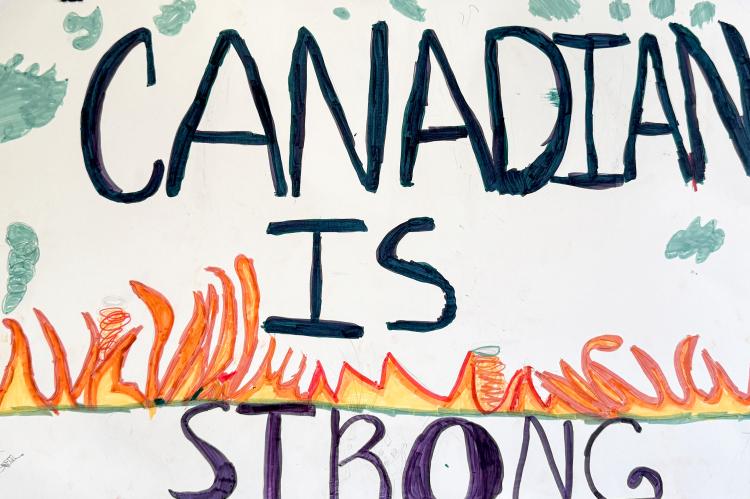 CANADIAN
IS
STRONG